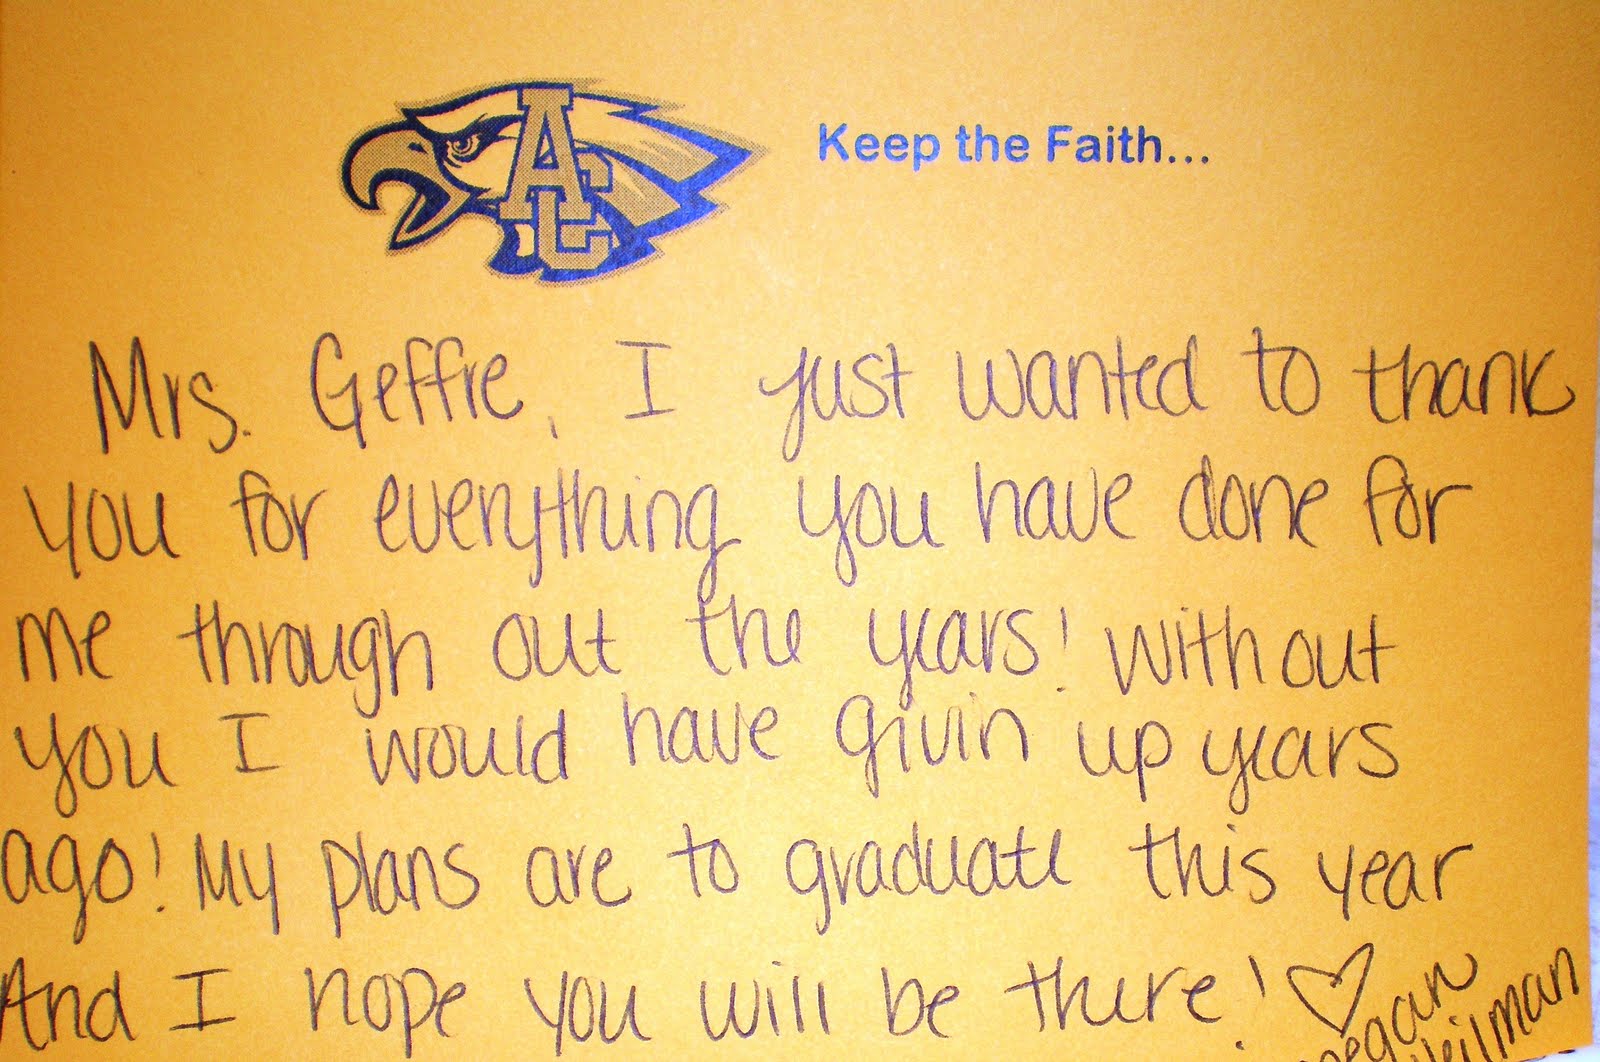 AC
Keep the Faith...
Mrs. Geffre, I just wanted to thank
you for everything you have done for
me through out the years! Without
you I would have givin up years
ago! My plans are to graduate this year
And I hope you will be there! ♡